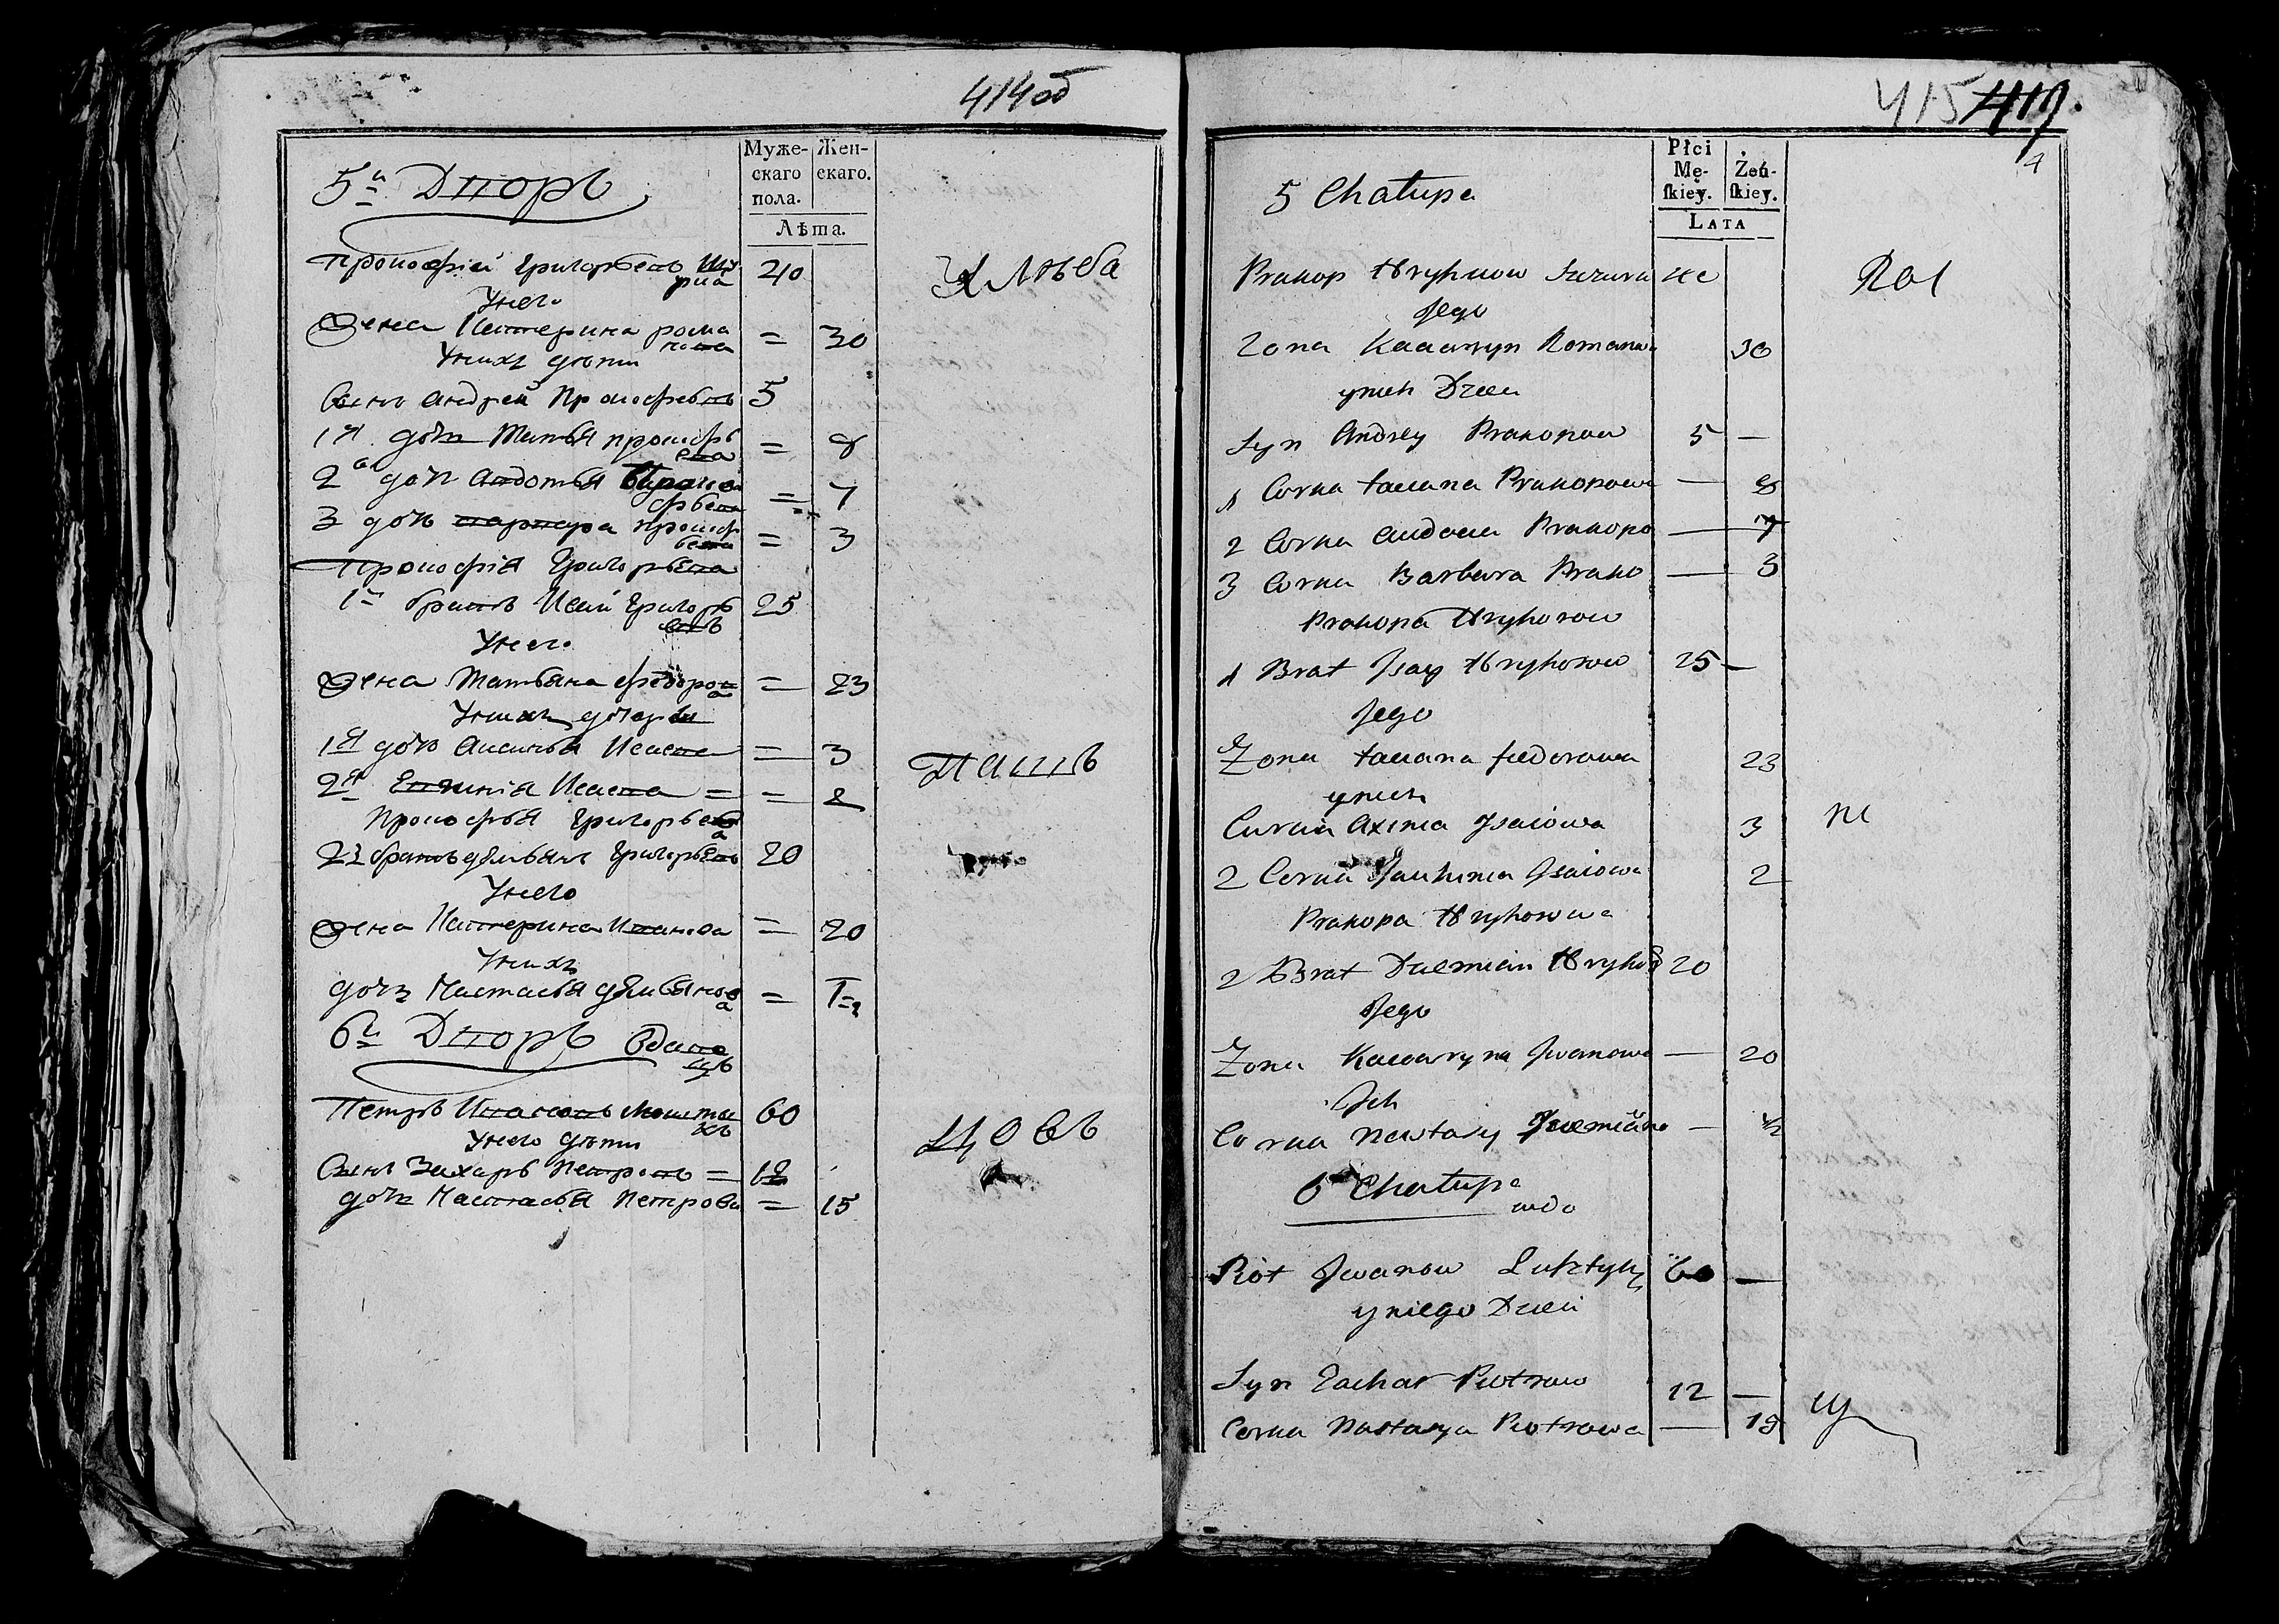 414 об
Муже-
скаго
пола.
Жен-
скаго.
Лѣта.
5й Дворъ
Прокофій Григорьевъ 40
У него
Жена Катерина Рома
нова = 30
У нихъ дѣти
Сынъ Андрей Прокофьевъ 5
1я дочь Татьа Прокофь
ева = 8
2я дочь Авдотья Проко
фьева = 7
3 дочь Варвара Прокоф
ьева = 3
Прокофія Григорьева
1й братъ Исай Григорь 25
евъ
У него
Жена Татьяна Федоров
а = 23
У нихъ дочери
1я дочь Аксинья Исаева = 3
2я Евхимія Исаева = = 2
Прокофья Григорьев
а
2й братъ Демьянъ Григорьевъ 20
У него
Жена Катерина Иванова = 20
У нихъ
дочь Настасья Демьянов
а =
6й Дворъ вдове
цъ
Петръ Ивановъ 60
У него дѣти
Сынъ Захаръ Петровъ = 12
дочь Настасья Петрова = 15
Хлѣба
пашъ
цовъ
415 417.
4
Płci
Mę-
ſkiey.
Żeń-
ſkiey.
LATA
5 Chałupa
Prakop Hryhorow Szczura 40
Jego
Zona Kaciaryn Romanowa 30
y nich Dzieci
Syn Andrey Prakopow 5 —
1 Corka Taciana Prakopowa — 8
2 Corka Audocia Prakopo — 7
3 Corka Barbara Prako — 3
Prakopa Hryhorow
1 Brat Jsay Hryhorow 25 —
Jego
Zona Taciana Fiedorowa 23
y nich
Curka Axinia Jsaiowa 3
2 Corka Jauhinia Jsaiowa 2
Prakopa Hryhorowa
2 Brat Dziemian Hryhor 20
Jego
Zona Kaciaryna Jwanowa — 20
Jch
Corka Nastasy Dziemiano — 1/2
6 Chałupa
wdo
Piot Jwanow 60 —
y niego Dzieci
Syn Zachar Piotrow 12 —
Corka Nastasya Piotrowa — 15
Rol
ni
cy